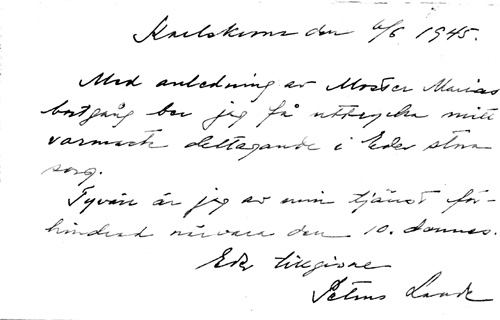 Karlskrona den 6/6 1945.
Med anledning av Moster Marias
bortgång ber jag få uttrycka mitt
varmaste deltagande i Eder stora
sorg.
Tyvärr är jag av min tjänst för-
hindrad närvara den 10. dennes.
Eder tillgivne
Petrus